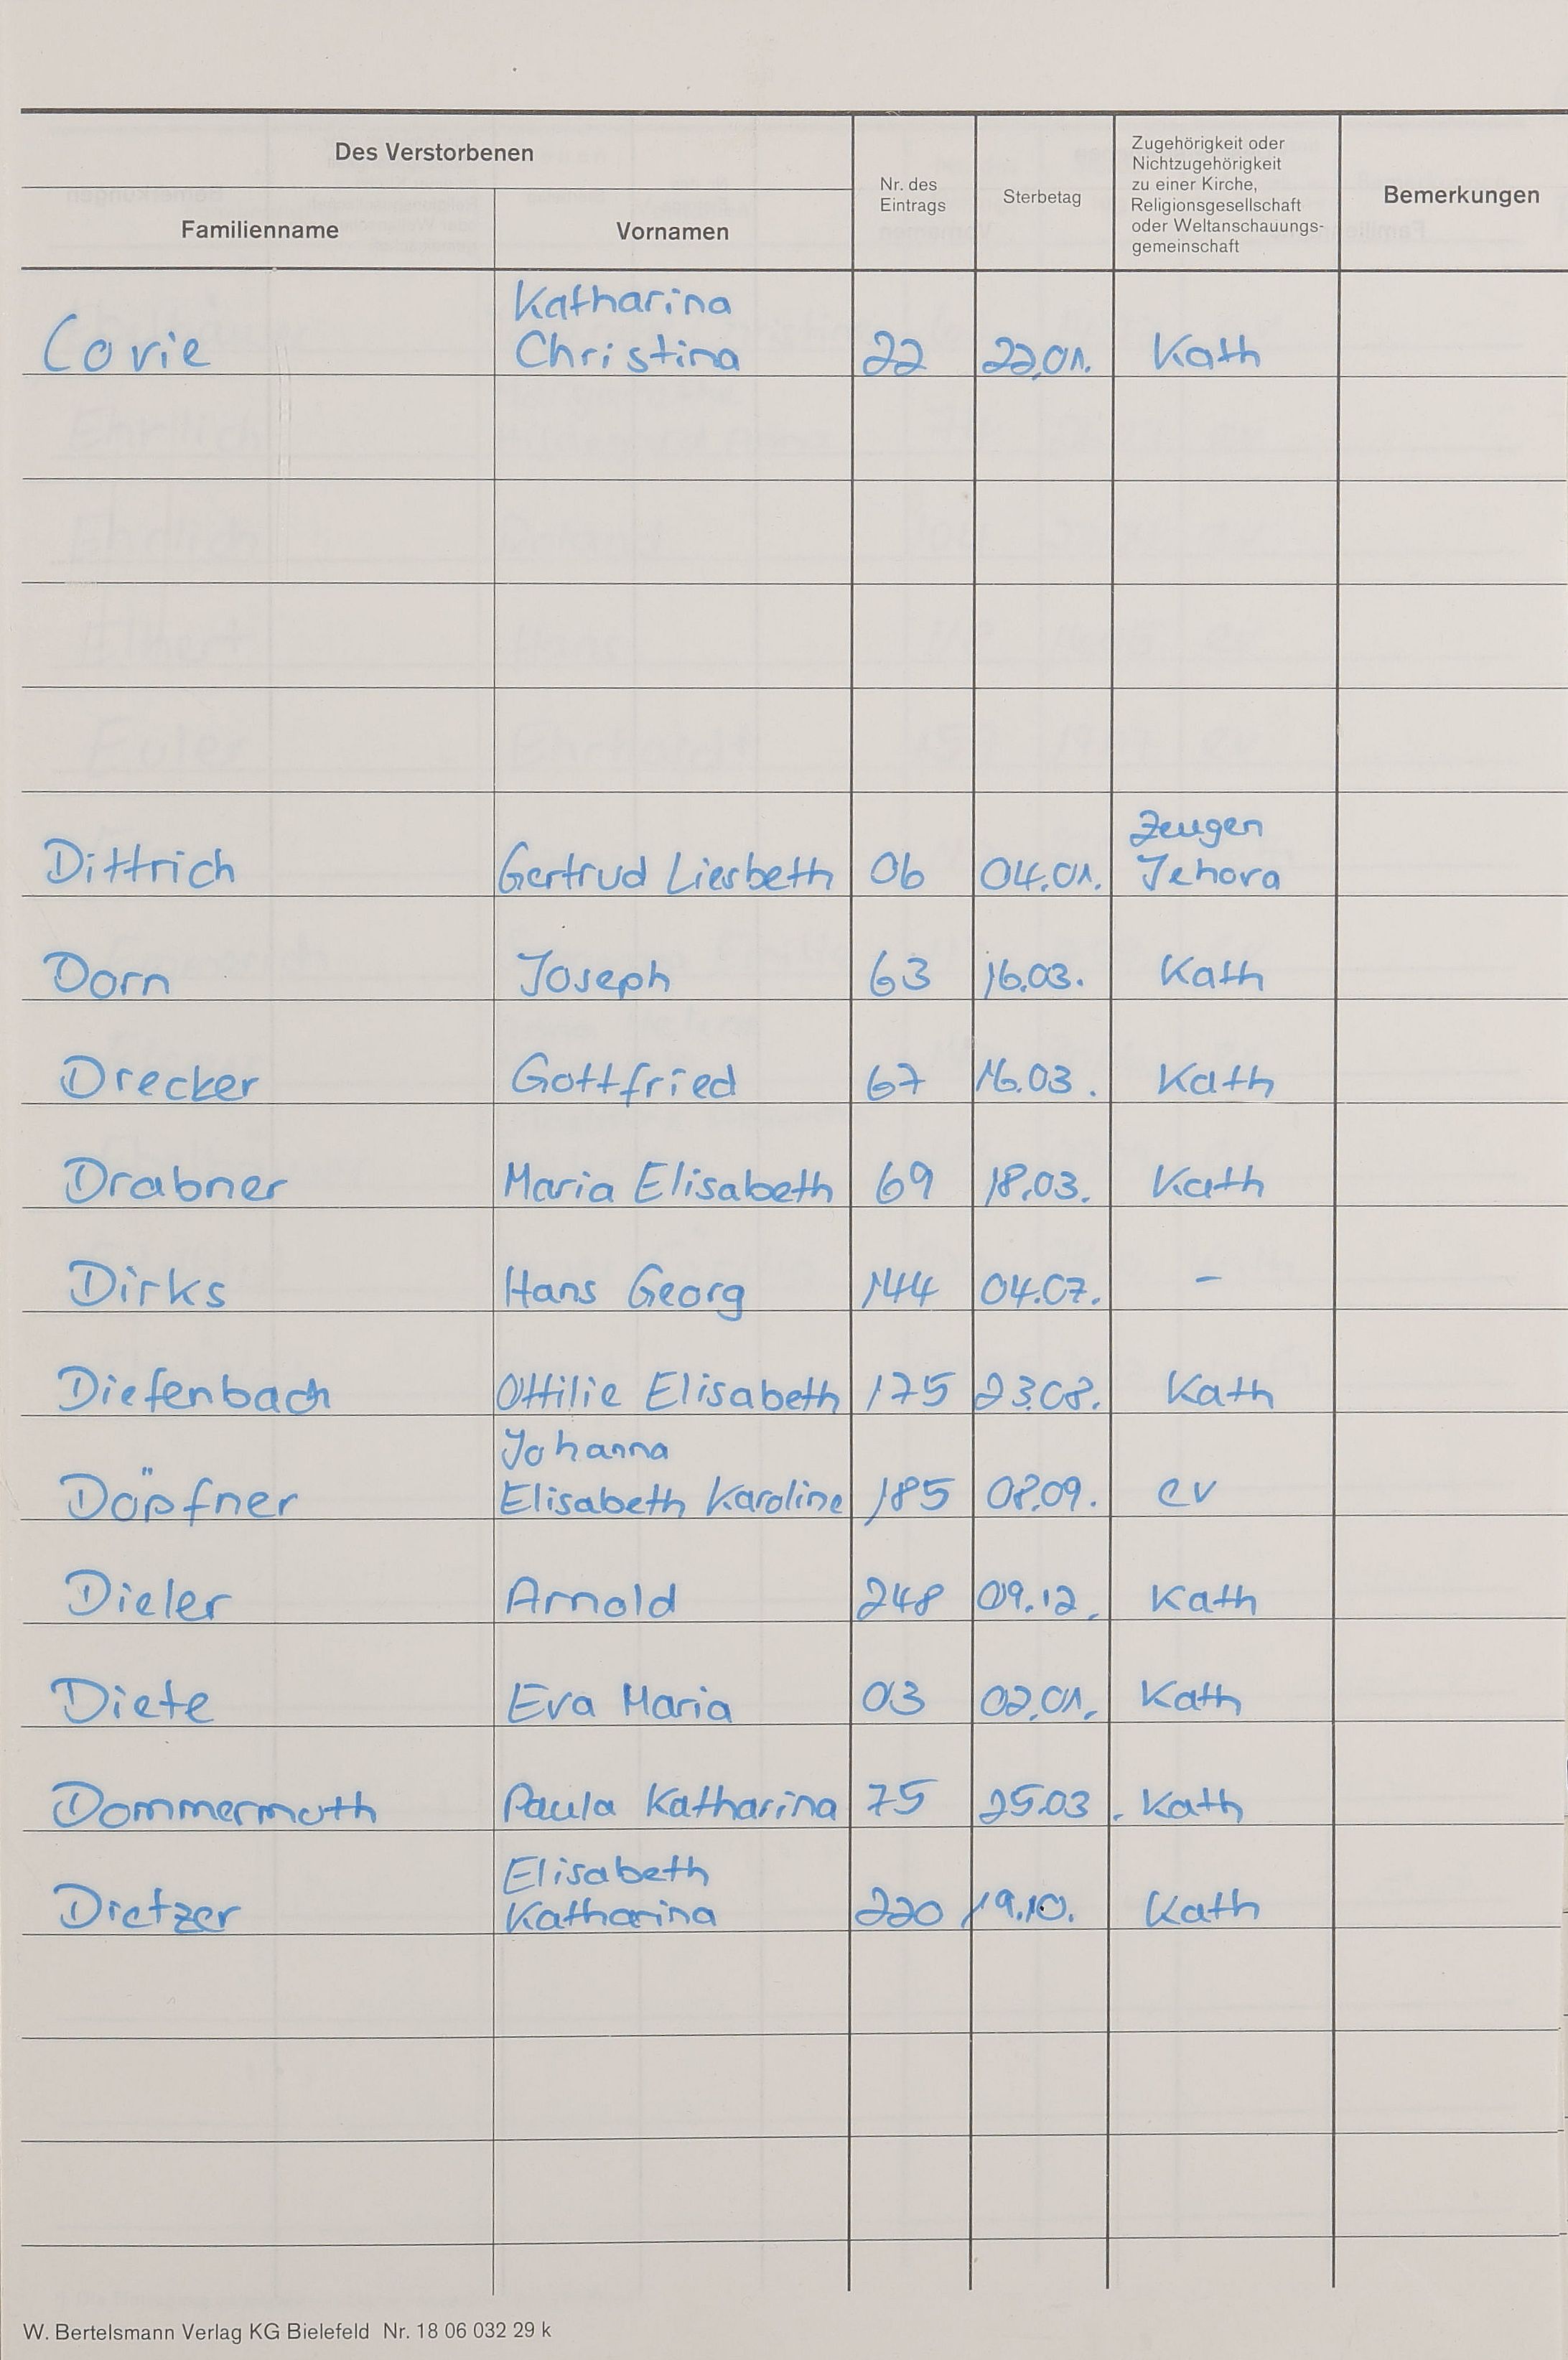 Des Verstorbenen
Familienname
Vornamen
Nr. des
Eintrags
Sterbetag
Zugehörigkeit oder
Nichtzugehörigkeit
zu einer Kirche,
Religionsgesellschaft
oder Weltanschauungs-
gemeinschaft
Bemerkungen
Katharina
Corie Christina 22 22.01. Kath
Zeugen
Dittrich Gertrud Liesbeth 06 04.01. Jehova
Dorn Joseph 63 16.03. Kath
Drecker Gottfried 67 16.03. Kath
Drabner Maria Elisabeth 69 18.03. Kath
Dirks Hans Georg 144 04.07. –
Diefenbach Ottilie Elisabeth 175 23.08. Kath
Johanna
Döpfner Elisabeth Karoline 185 08.09. ev
Dieler Arnold 248 09.12. Kath
Diete Eva Maria 03 02.01. Kath
Dommermuth Paula Katharina 75 25.03. Kath
Elisabeth
Dietzer Katharina 220 19.10. Kath
W. Bertelsmann Verlag KG Bielefeld Nr. 18 06 032 29 k